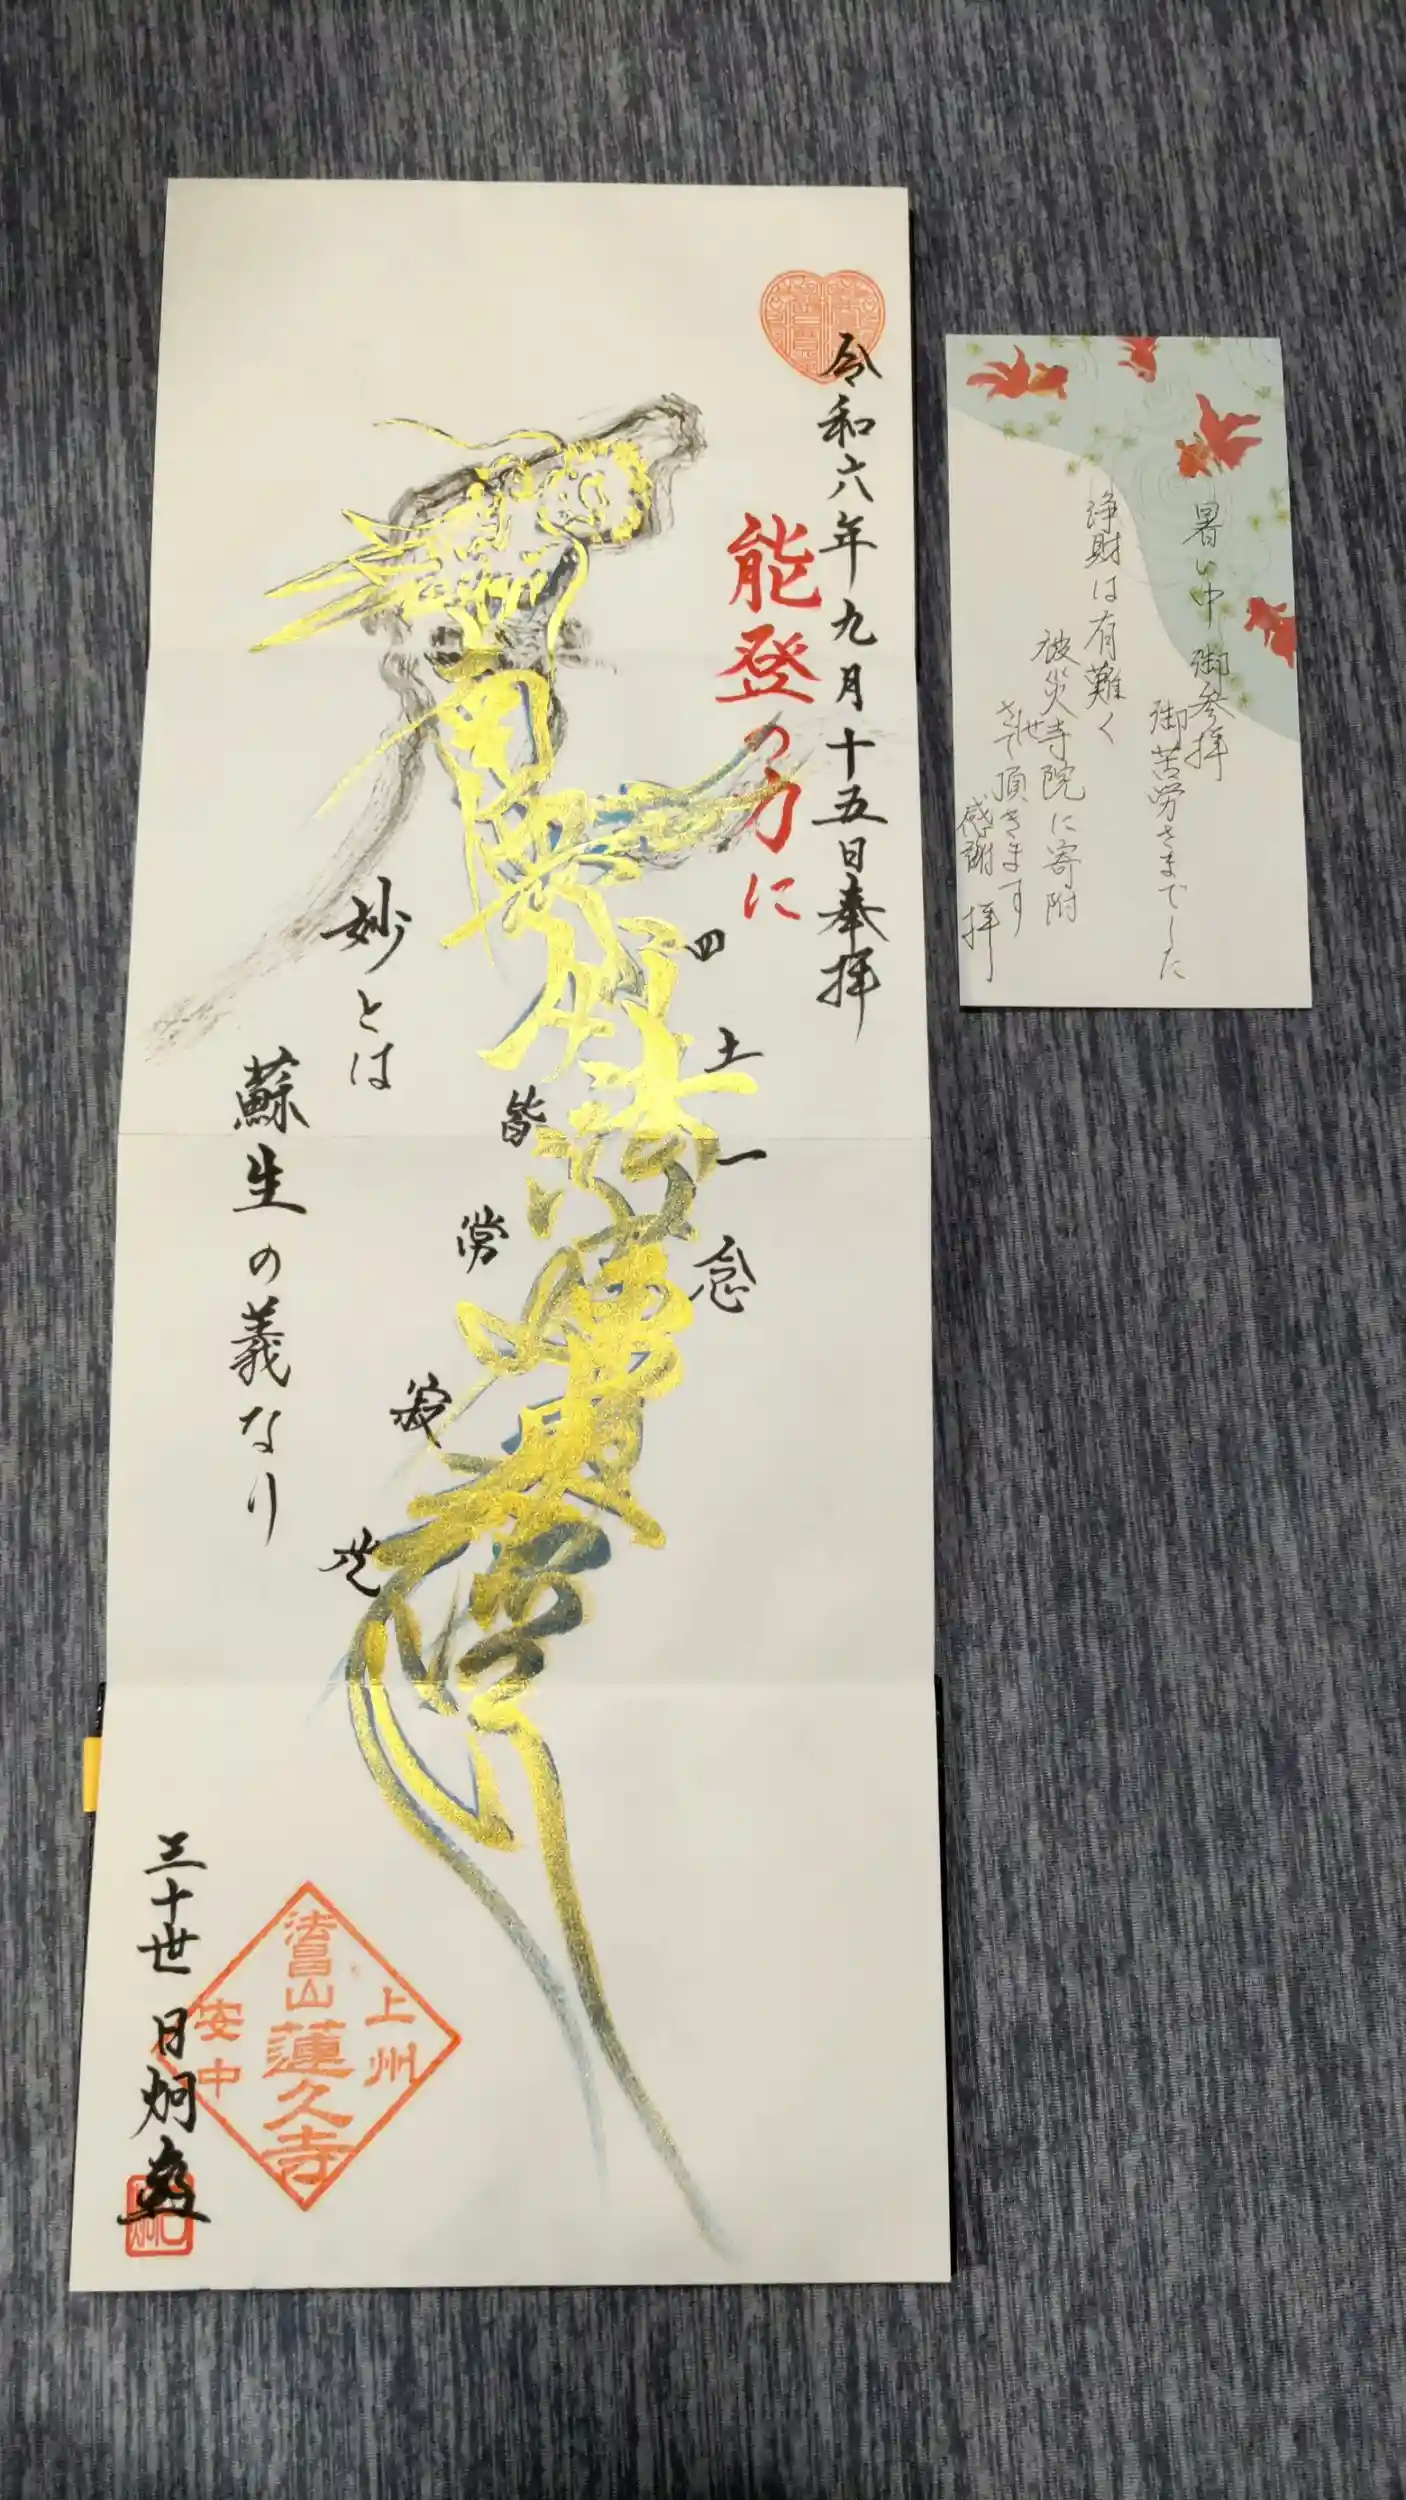 令和六年九月十五日奉拝
能登の力に
四土一念
南無妙法蓮華経
皆常寂光
妙とは
蘇生の義なり
上州
法昌山蓮久寺
安中
三十世 日炯
暑い中 御参拝
御苦労さまでした
浄財は有難く
被災寺院に寄附
させて頂きます
感謝 拝